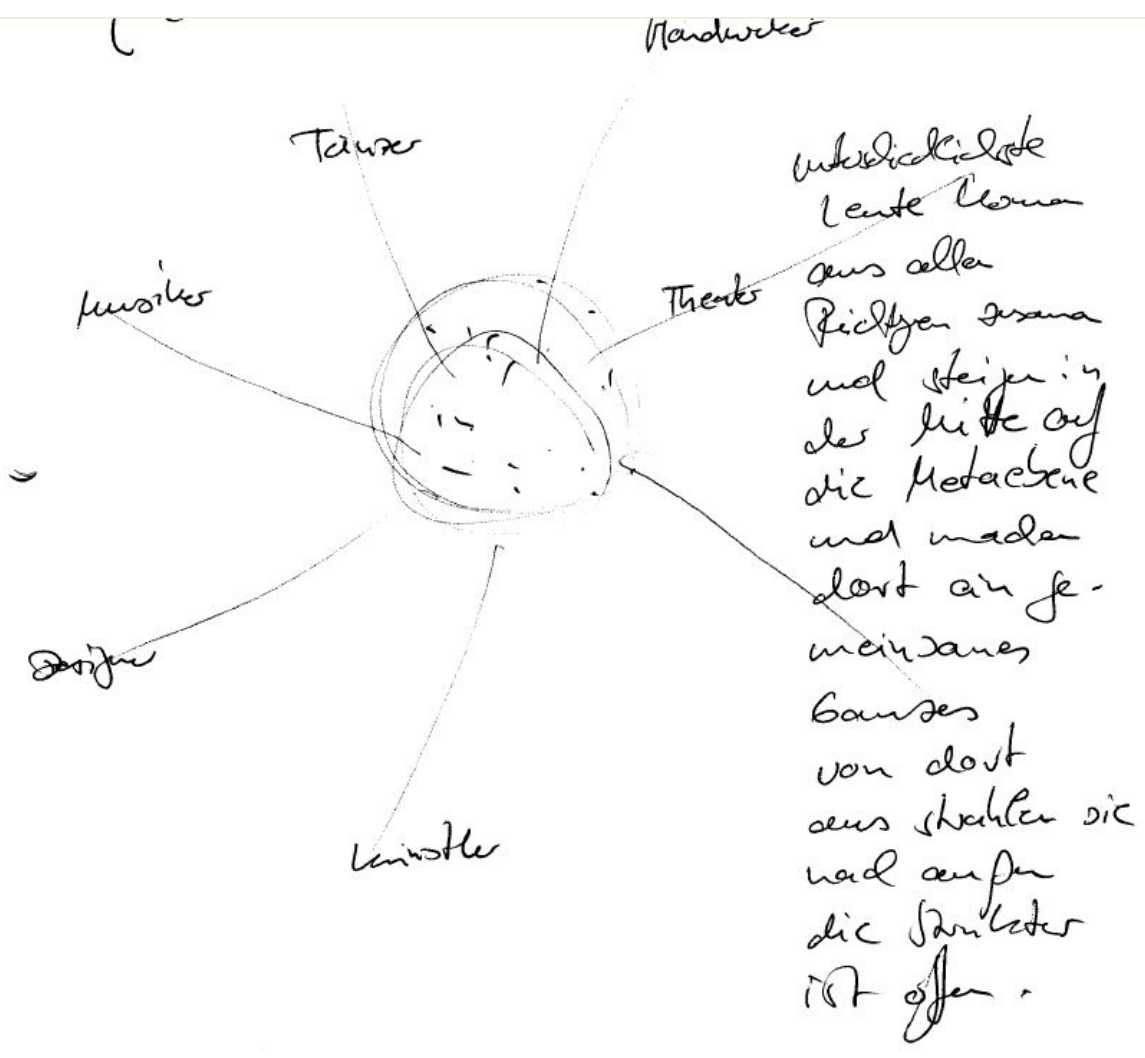 Handwerker
Tänzer
Musiker
Theater
Designer
Künstler
unterschiedlichste
Leute kommen
aus allen
Richtgen zusamm
und steigen in
der Mitte auf
die Metaebene
und machen
dort ein ge-
meinsames
Ganzes
von dort
aus strahlen sie
nach außen
die Struktur
ist offen.